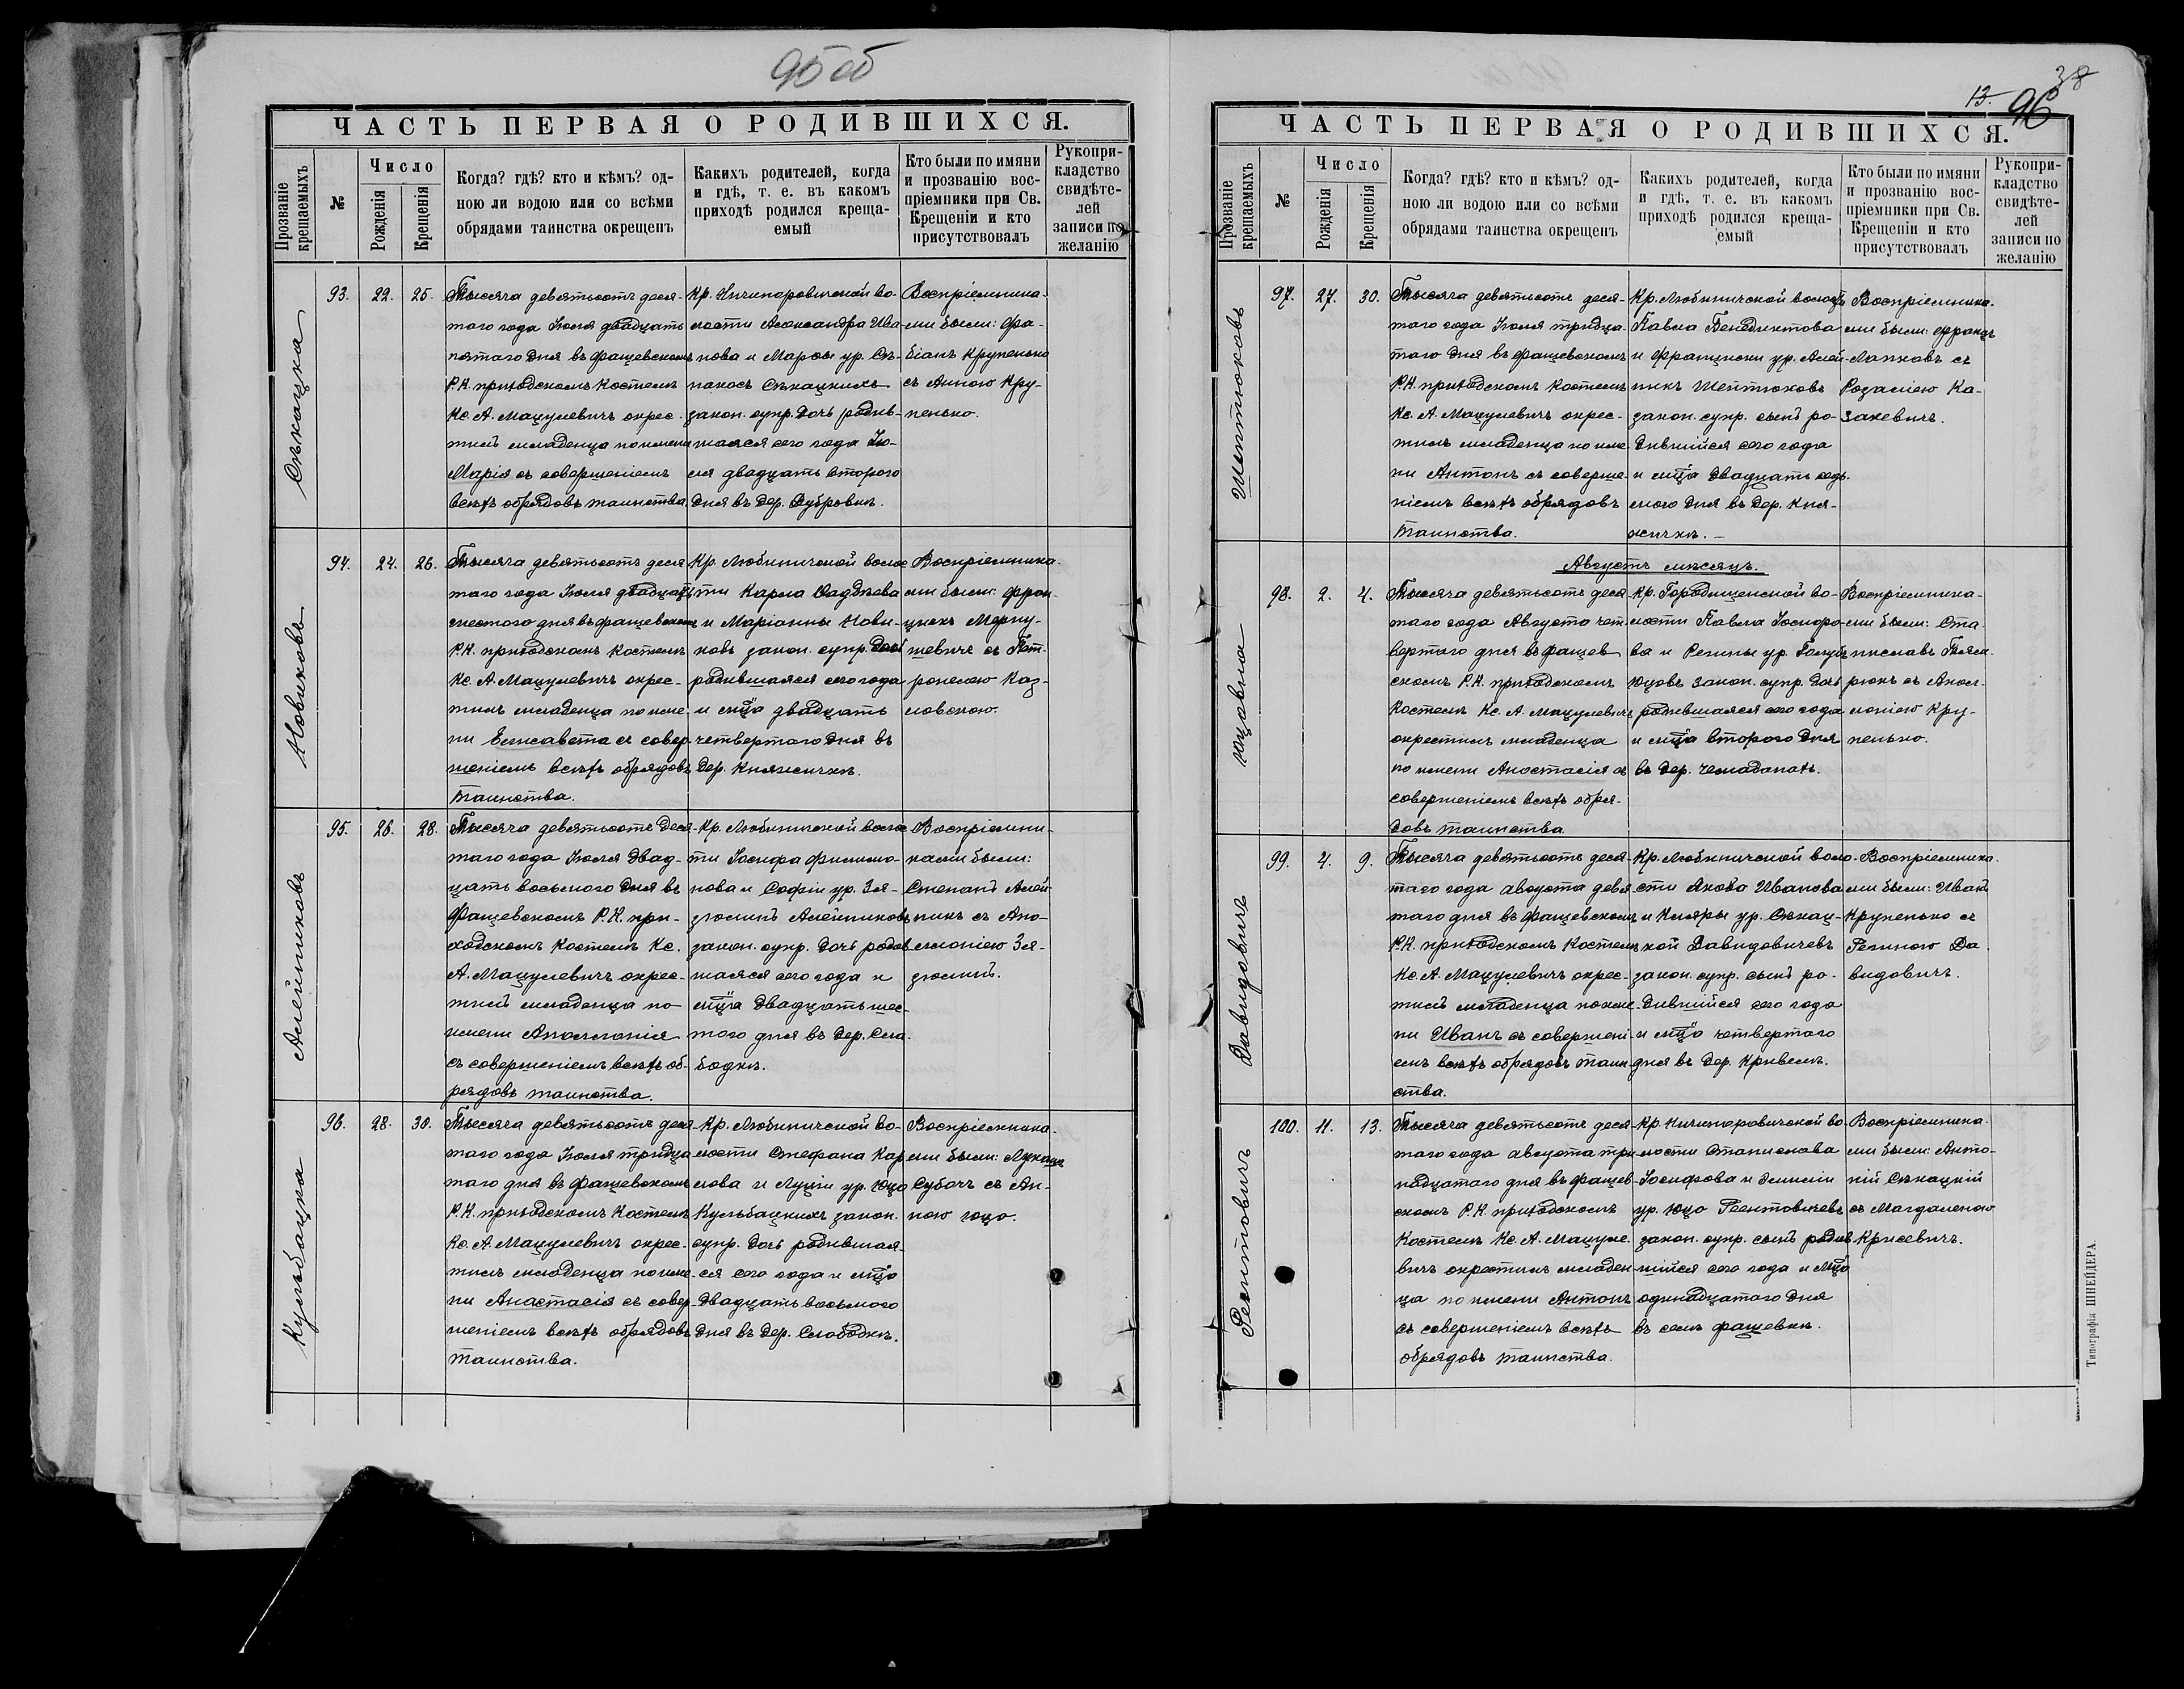 95 об
ЧАСТЬ ПЕРВАЯ О РОДИВШИХСЯ.
Прозваніе крещаемыхъ
№
Число
Рожденія
Крещенія
Когда? гдѣ? кто и кѣмъ? од-
ною ли водою или со всѣми
обрядами таинства окрещенъ
Какихъ родителей, когда
и гдѣ, т. е. въ какомъ
приходѣ родился креща-
емый
Кто были по имяни
и прозванію вос-
пріемники при Св.
Крещеніи и кто
присутствовалъ
Рукопри-
кладство
свидѣте-
лей
записи по
желанію
Сѣкацка
93.
22.
25.
Тысяча девятьсотъ деся-
таго года Іюля двадцать
пятаго дня въ Фащевскомъ
Р.К. приходскомъ Костелѣ
Кс. А. Мацулевичъ окрес-
тилъ младенца по имени
Марія съ совершеніемъ
всѣхъ обрядовъ таинства.
Кр. Ничипоровичской во-
лости Александра Ива-
нова и Марѳы ур.
Сѣкацкихъ
закон. супр. дочь родив-
шаяся сего года Ію-
ля двадцать второго
дня въ дер. Дубровкѣ.
Воспріемника-
ми были: Фа-
біанъ Крупенько
съ Анною Кру-
пенько.
Новиковъ
94.
24.
26.
Тысяча девятьсотъ деся
таго года Іюля двадцать
шестого дня въ Фащевскомъ
Р.К. приходскомъ Костелѣ
Кс. А. Мацулевичъ окрес-
тилъ младенца по име-
ни Елисавета съ совер-
шеніемъ всѣхъ обрядовъ
таинства.
Кр. Любиничской волос
ти Карла Фаддѣева
и Маріанны Нови-
ковъ закон. супр. дочь
родившаяся сего года
и мѣца двадцать
четвертаго дня въ
дер. Княжичкѣ.
Воспріемника-
ми были: Фран-
цискъ Мерку-
шевичъ съ Пет-
ронелею Каз-
ловскою.
Алейниковъ
95.
26.
28.
Тысяча девятьсотъ деся-
таго года Іюля двад-
цать восьмого дня въ
Фащевскомъ Р.К. при-
ходскомъ Костелѣ Кс.
А. Мацулевичъ окрес-
тилъ младенца по
имени Аполлонія
съ совершеніемъ всѣхъ об-
рядовъ таинства.
Кр. Любиничской волос
ти Іосифа Филимо-
нова и Софіи ур. Зя-
зюлинъ Алейниковъ
закон. супр. дочь родив
шаяся сего года и
мѣца двадцать шес-
того дня въ дер. Сло-
бодкѣ.
Воспріемни-
ками были:
Степанъ Алей
никъ съ Апо-
ллоніею Зя-
зюлинъ.
Кульбацка
96.
28.
30.
Тысяча девятьсотъ деся
таго года Іюля тридца
таго дня въ Фащевскомъ
Р.К. приходскомъ Костелѣ
Кс. А. Мацулевичъ окрес-
тилъ младенца по име-
ни Анастасія съ совер-
шеніемъ всѣхъ обрядовъ
таинства.
Кр. Любиничской во-
лости Стефана Кар
лова и Луціи ур. Юцо
Кульбацкихъ закон.
супр. дочь родившая-
ся сего года и мѣца
двадцать восьмого
дня въ дер. Слободкѣ.
Воспріемника-
ми были: Лукашъ
Суботъ съ Ан-
ною Юцо.
13.
96
38
ЧАСТЬ ПЕРВАЯ О РОДИВШИХСЯ.
Прозваніе крещаемыхъ
№
Число
Рожденія
Крещенія
Когда? гдѣ? кто и кѣмъ? од-
ною ли водою или со всѣми
обрядами таинства окрещенъ
Какихъ родителей, когда
и гдѣ, т. е. въ какомъ
приходѣ родился креща-
емый
Кто были по имяни
и прозванію вос-
пріемники при Св.
Крещеніи и кто
присутствовалъ
Рукопри-
кладство
свидѣте-
лей
записи по
желанію
Шептюковъ
97.
27.
30.
Тысяча девятьсотъ деся-
таго года Іюля тридца-
таго дня въ Фащевскомъ
Р.К. приходскомъ Костелѣ
Кс. А. Мацулевичъ окрес-
тилъ младенца по име
ни Антонъ съ соверше-
ніемъ всѣхъ обрядовъ
таинства.
Кр. Любиничской волости
Павла Бенедиктова
и Францишки ур. Алей-
никъ Шептюковъ
закон. супр. сынъ ро-
дившійся сего года
и мѣца двадцать седь-
мого дня въ дер. Кня-
жичкѣ. —
Воспріемника-
ми были: Францъ
Лапковъ съ
Розаліею Ка-
закевичъ.
Августъ мѣсяцъ.
Юцовна
98.
2.
4.
Тысяча девятьсотъ деся
таго года Августа чет-
вертаго дня въ Фащев
скомъ Р.К. приходскомъ
Костелѣ Кс. А. Мацулевичъ
окрестилъ младенца
по имени Анастасія съ
совершеніемъ всѣхъ обря-
довъ таинства.
Кр. Городищенской во-
лости Павла Іосифо-
ва и Регины ур.
Юцовъ закон. супр. дочь
родившаяся сего года
и мѣца второго дня
въ дер. Чемоданахъ.
Воспріемника-
ми были: Ста-
ниславъ
съ Апол-
лоніею Кру-
пенько.
Давидовичъ
99.
4.
9.
Тысяча девятьсотъ деся-
таго года августа девя
таго дня въ Фащевскомъ
Р.К. приходскомъ Костелѣ
Кс. А. Мацулевичъ окрес-
тилъ младенца по име-
ни Иванъ съ совершені-
емъ всѣхъ обрядовъ таин-
ства.
Кр. Любиничской воло-
сти Якова Иванова
и Кляры ур. Сѣкац-
кой Давидовичевъ
закон. супр. сынъ ро-
дившійся сего года
и мѣца четвертаго
дня въ дер. Кривелѣ.
Воспріемника-
ми были: Иванъ
Крупенько съ
Региною Да
видовичъ.
Реентовичъ
100.
11.
13.
Тысяча девятьсотъ деся-
таго года августа три-
надцатаго дня въ Фащев-
скомъ Р.К. приходскомъ
Костелѣ Кс. А. Мацуле-
вичъ окрестилъ младен-
ца по имени Антонъ
съ совершеніемъ всѣхъ
обрядовъ таинства.
Кр. Ничипоровичской во
лости Станислава
Іосифова и
ур. Юцо Реентовичевъ
закон. супр. сынъ родив
шійся сего года и мѣца
одинадцатаго дня
въ селѣ Фащевкѣ.
Воспріемника-
ми были: Анто-
ній Сѣкацкій
съ Магдаленою
Крисевичъ.
Типографія ШНЕЙДЕРА